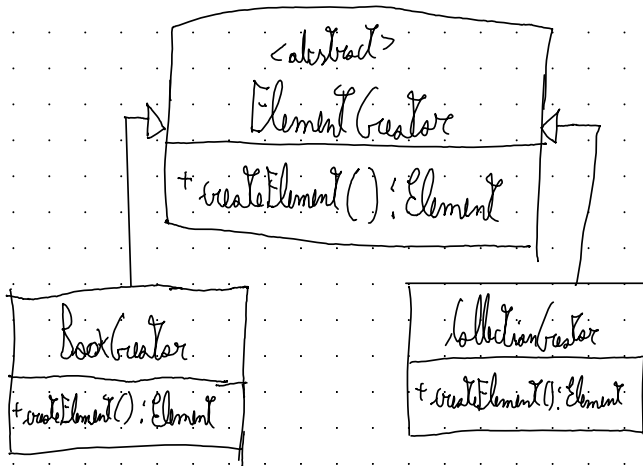 <abstract>
ElementCreator
+ createElement() : Element
BookCreator
+ createElement() : Element
CollectionCreator
+ createElement() : Element